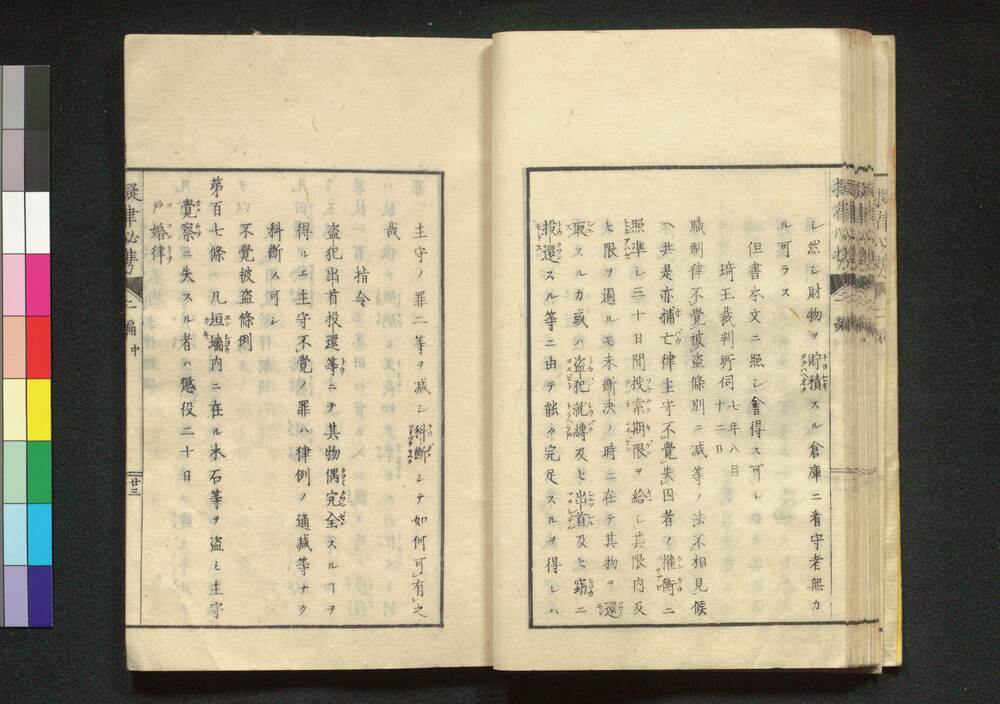 シ然シ財物ヲ貯積スル倉庫ニ看守者無カ
ル可ラス
但書本文ニ照シ會得ス可シ
埼玉裁判所伺 七年八月十二日
職制律不覺被盗條別ニ减等ノ法不相見候
ヘ共是亦捕亡律主守不覺失囚者ノ權衡ニ
照準シ三十日間捜索期限ヲ給シ其限内及
ヒ限ヲ過ルモ未斷决ノ時ニ在テ其物ヲ還
取スルカ或ハ盗犯就縛及ヒ出首及ヒ竊ニ
投還スル等ニ由テ能ク完足スルヲ得レハ
主守ノ罪二等ヲ减シ科斷シテ如何可有之
哉
指令
盗犯出首投還等ニテ其物偶完全スルヿヲ
得ルニ主守不覺ノ罪ハ律例ノ通减等ナク
科斷ス可シ
不覺被盗條例
第百七條 凡垣墻内ニ在ル木石等ヲ盗ミ主守
覺察ニ失スル者ハ懲役二十日
戸婚律
擬律必携 二編中 廿三